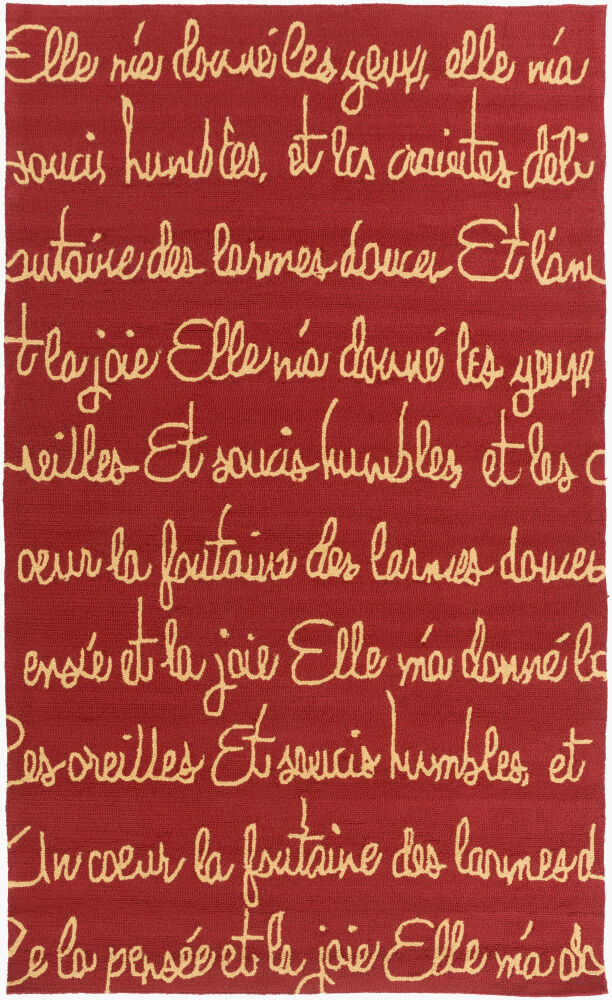 Elle m'a donné les yeux, elle m'a
soucis humbles, et les craintes déli
ntaine des larmes douces Et l'am
t la joie Elle m'a donné les yeux
reilles Et soucis humbles, et les c
oeur la fontaine des larmes douces
ensée et la joie Elle m'a donné la
les oreilles Et soucis humbles, et
Un coeur la fontaine des larmes d
De la pensée et la joie Elle m'a do